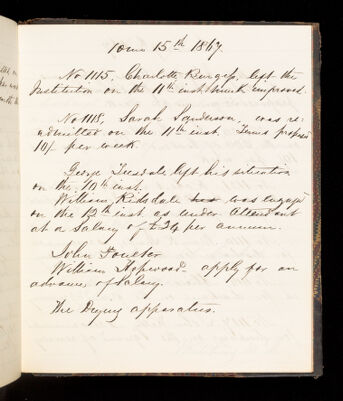 10mo 15th 1867.
No 1115, Charlotte Burgess, left the
Institution on the 11th inst. much improved.
No 1118, Sarah Sanderson, was re-
admitted on the 11th inst. Terms proposed
10/- per week.
George Teesdale left his situation
on the 10th inst.
William Ridsdale was engaged
on the 12th inst as under Attendant
at a Salary of £24 per annum.
John Poulter
William Hopwood apply for an
advance of Salary.
The Drying apparatus.